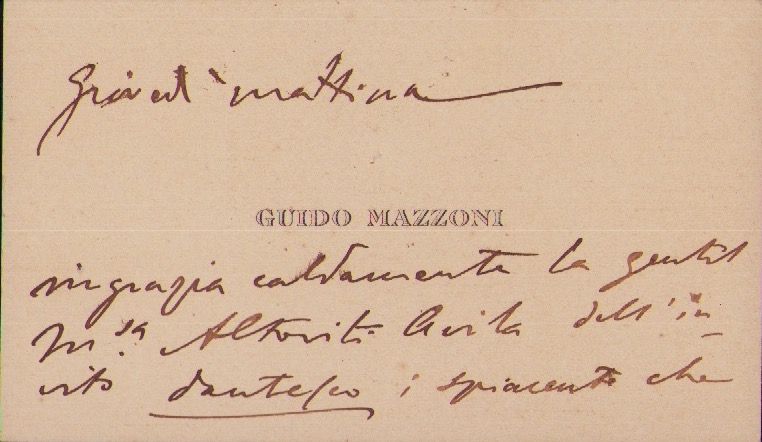 Giovedì mattina
GUIDO MAZZONI
ringrazia caldamente la gentil
M.sa Altoviti Avila dell'in-
vito dantesco; spiacente che